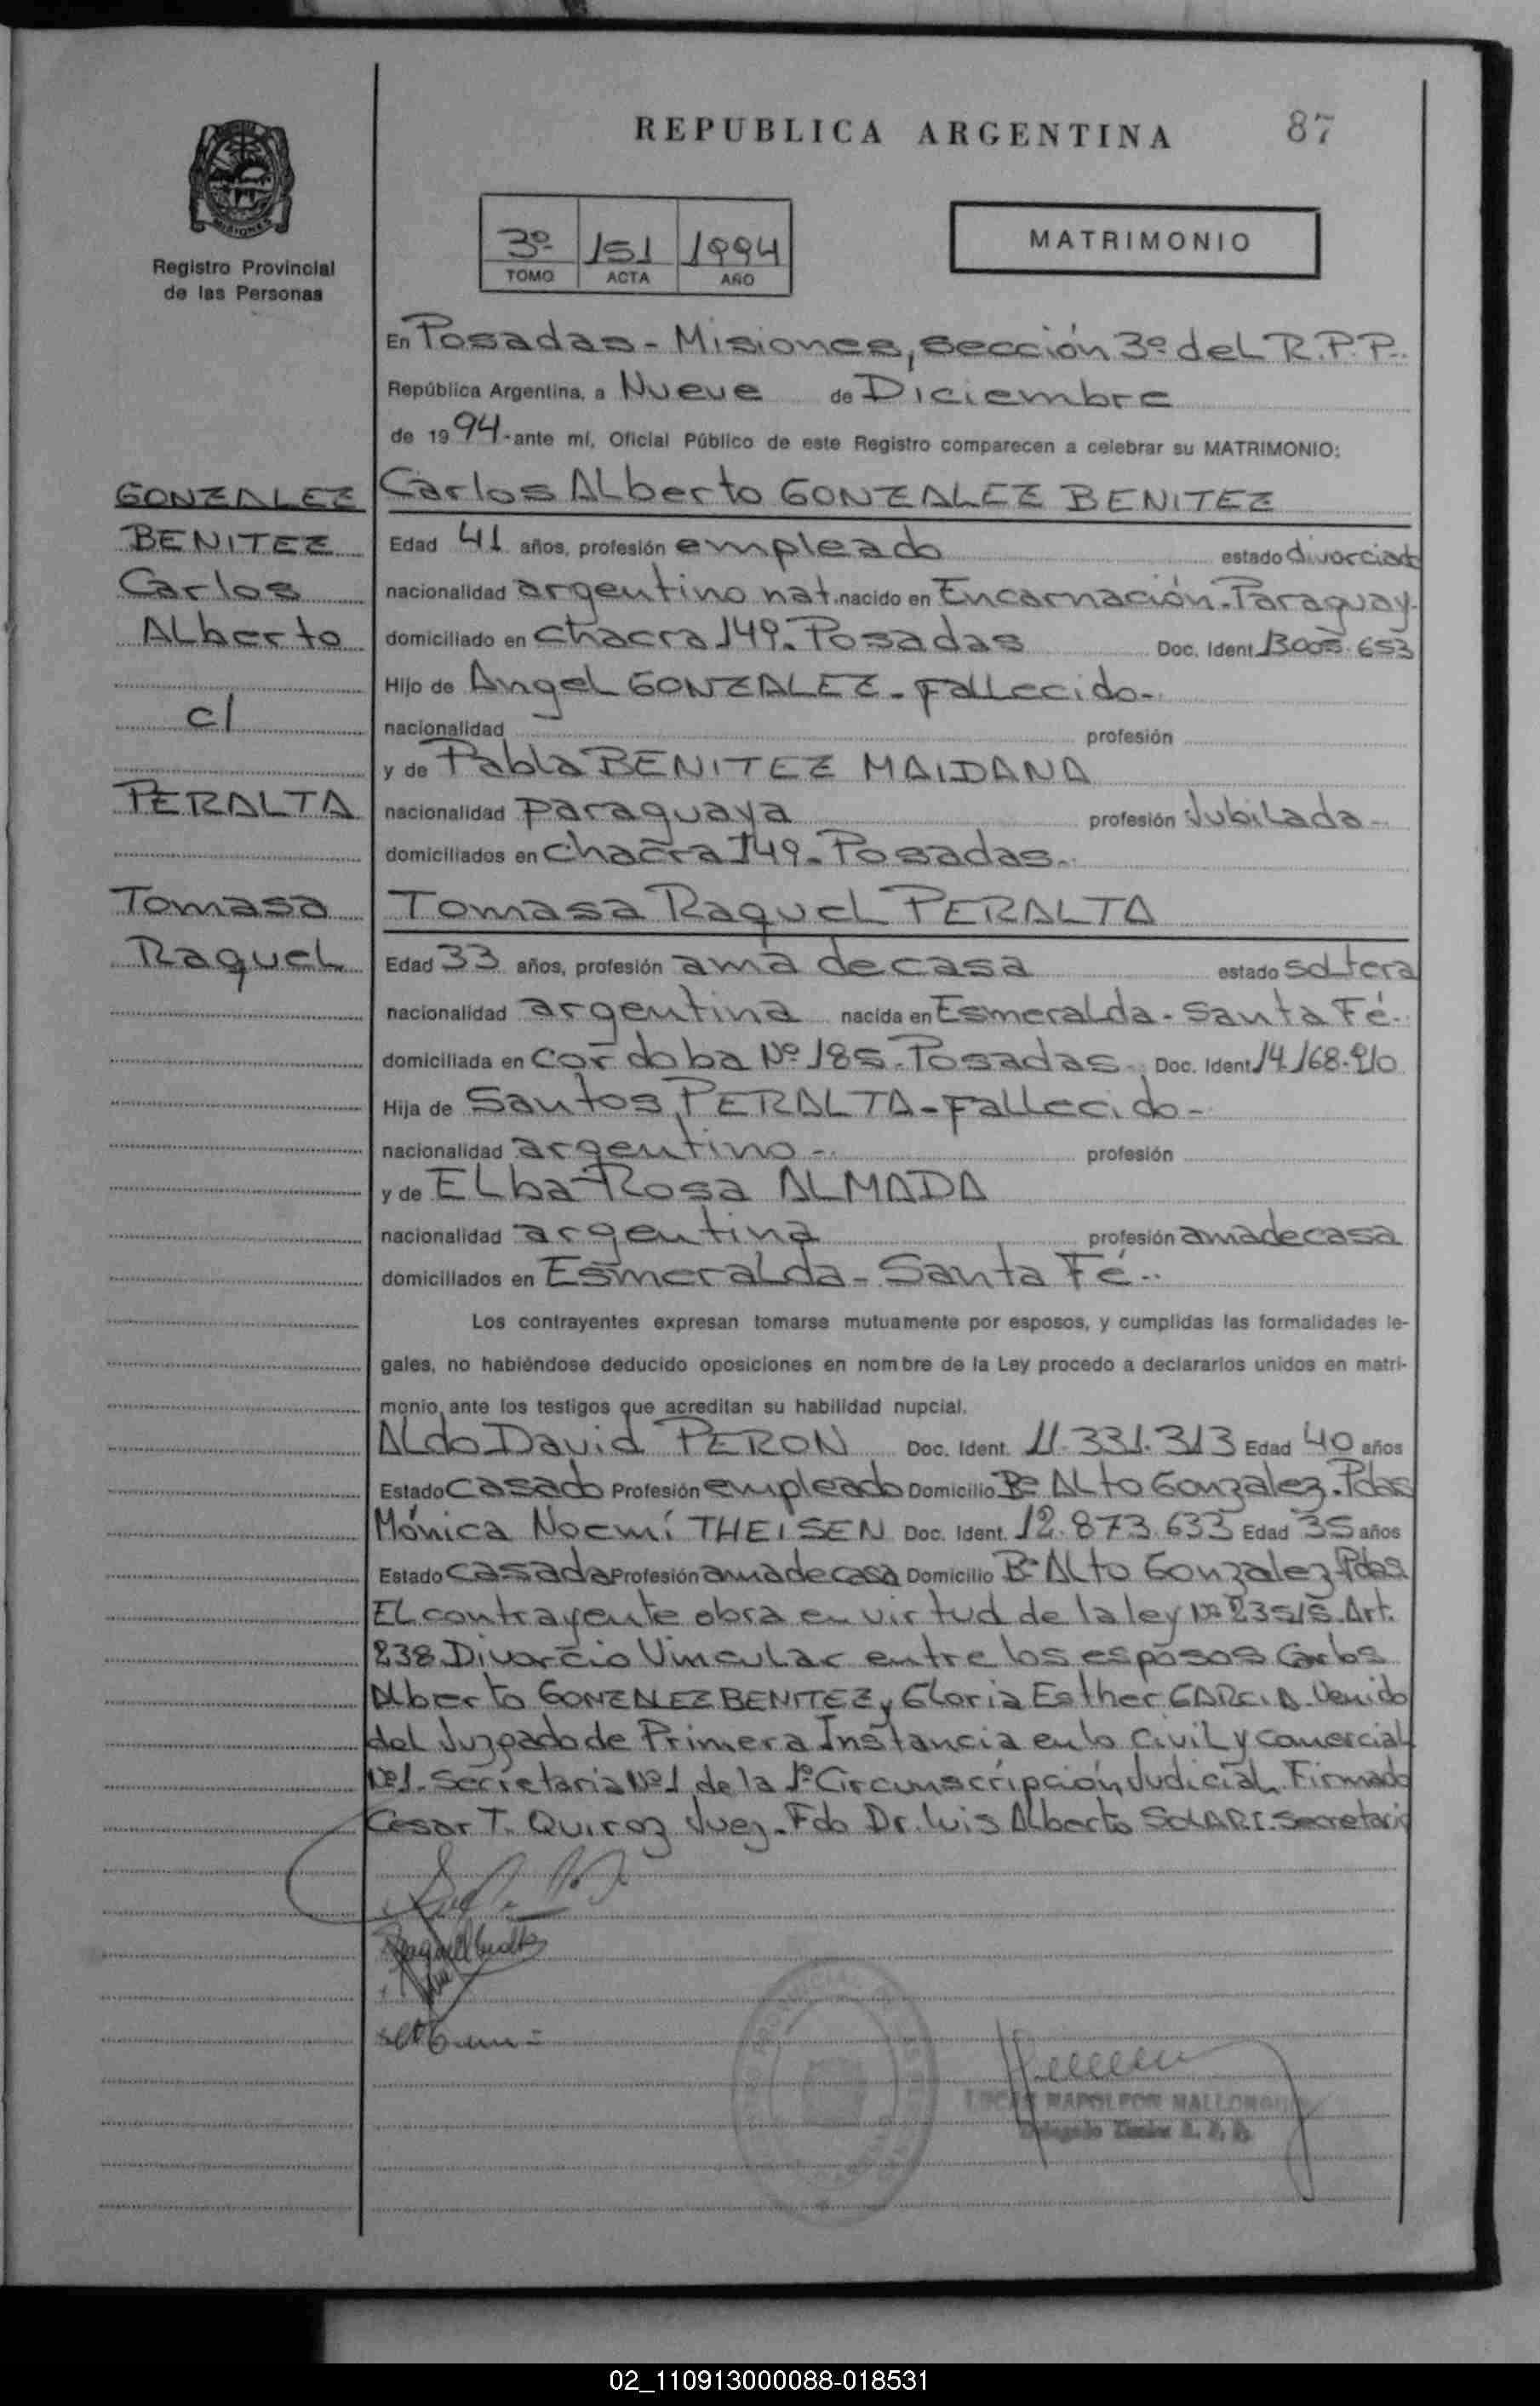 REPUBLICA ARGENTINA
87
MISIONES
Registro Provincial
de las Personas
3º 151 1994
TOMO ACTA AÑO
MATRIMONIO
En Posadas - Misiones, sección 3º del R.P.P..
República Argentina, a Nueve de Diciembre
de 1994.- ante mí, Oficial Público de este Registro comparecen a celebrar su MATRIMONIO:
GONZALEZ
BENITEZ
Carlos
Alberto
c/
PERALTA
Tomasa
Raquel
Carlos Alberto GONZALEZ BENITEZ
Edad 41 años, profesión empleado estado divorciado
nacionalidad argentino nat. nacido en Encarnación-Paraguay.
domiciliado en chacra 149. Posadas Doc. Ident. 13.005.653
Hijo de Angel GONZALEZ - Fallecido-.
nacionalidad profesión
y de Pabla BENITEZ MAIDANA
nacionalidad paraguaya profesión Jubilada-
domiciliados en chacra 149. Posadas.
Tomasa Raquel PERALTA
Edad 33 años, profesión ama de casa estado soltera
nacionalidad argentina nacida en Esmeralda - Santa Fé.
domiciliada en Cordoba Nº 185. Posadas. Doc. Ident. 14.168.910
Hija de Santos PERALTA - Fallecido -
nacionalidad argentino -. profesión
y de Elba Rosa ALMADA
nacionalidad argentina profesión ama de casa
domiciliados en Esmeralda - Santa Fé -.
Los contrayentes expresan tomarse mutuamente por esposos, y cumplidas las formalidades le-
gales, no habiéndose deducido oposiciones en nombre de la Ley procedo a declararlos unidos en matri-
monio, ante los testigos que acreditan su habilidad nupcial.
Aldo David PERON Doc. Ident. 11.331.313 Edad 40 años
Estado casado Profesión empleado Domicilio Bº Alto Gonzalez. Pdas
Mónica Noemí THEISEN Doc. Ident. 12.873.633 Edad 35 años
Estado casada Profesión ama de casa Domicilio Bº Alto Gonzalez Pdas
El contrayente obra en virtud de la ley Nº 23515. Art.
238 Divorcio Vincular entre los esposos Carlos
Alberto GONZALEZ BENITEZ y Gloria Esther GARCIA. Venido
del Juzgado de Primera Instancia en lo Civil y Comercial
Nº1. Secretaria Nº1 de la 1º Circunscripción Judicial. Firmado
Cesar T. Quiroz Juez. Fdo Dr. Luis Alberto SOLARI. Secretario
02_110913000088-018531